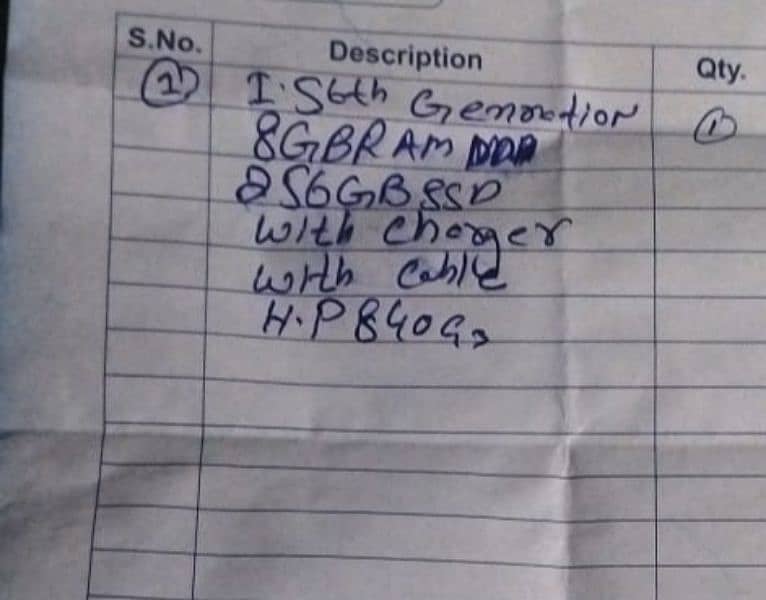 S.No. Description Qty.
① I.S6th Generation ①
8GBRAM
256GB SSD
With Charger
With Cable
H.P 840G3